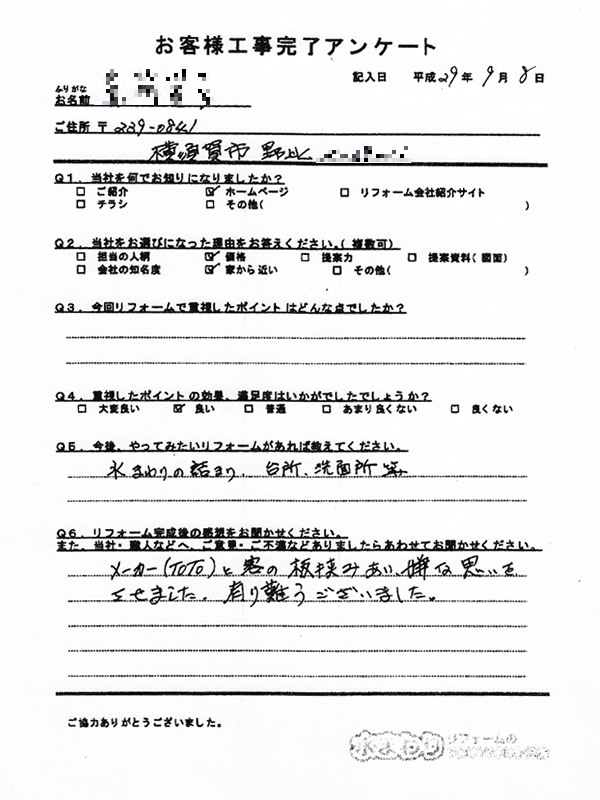 お客様工事完了アンケート
記入日 平成29年9月8日
ふりがな
お名前
ご住所 〒 239-0841
横須賀市 野比
Q1. 当社を何でお知りになりましたか?
□ ご紹介 ☑ ホームページ □ リフォーム会社紹介サイト
□ チラシ □ その他( )
Q2. 当社をお選びになった理由をお答えください。(複数可)
□ 担当の人柄 ☑ 価格 □ 提案力 □ 提案資料(図面)
□ 会社の知名度 ☑ 家から近い □ その他( )
Q3. 今回リフォームで重視したポイントはどんな点でしたか?
Q4. 重視したポイントの効果、満足度はいかがでしたでしょうか?
□ 大変良い ☑ 良い □ 普通 □ あまり良くない □ 良くない
Q5. 今後、やってみたいリフォームがあれば教えてください。
水まわりの詰まり、台所、洗面所等
Q6. リフォーム完成後の感想をお聞かせください。
また、当社・職人などへ、ご意見・ご不満などありましたらあわせてお聞かせください。
メーカー(TOTO)と客の板挟みあい、嫌な思いを
させました。有り難うございました。
ご協力ありがとうございました。
水まわり リフォームの